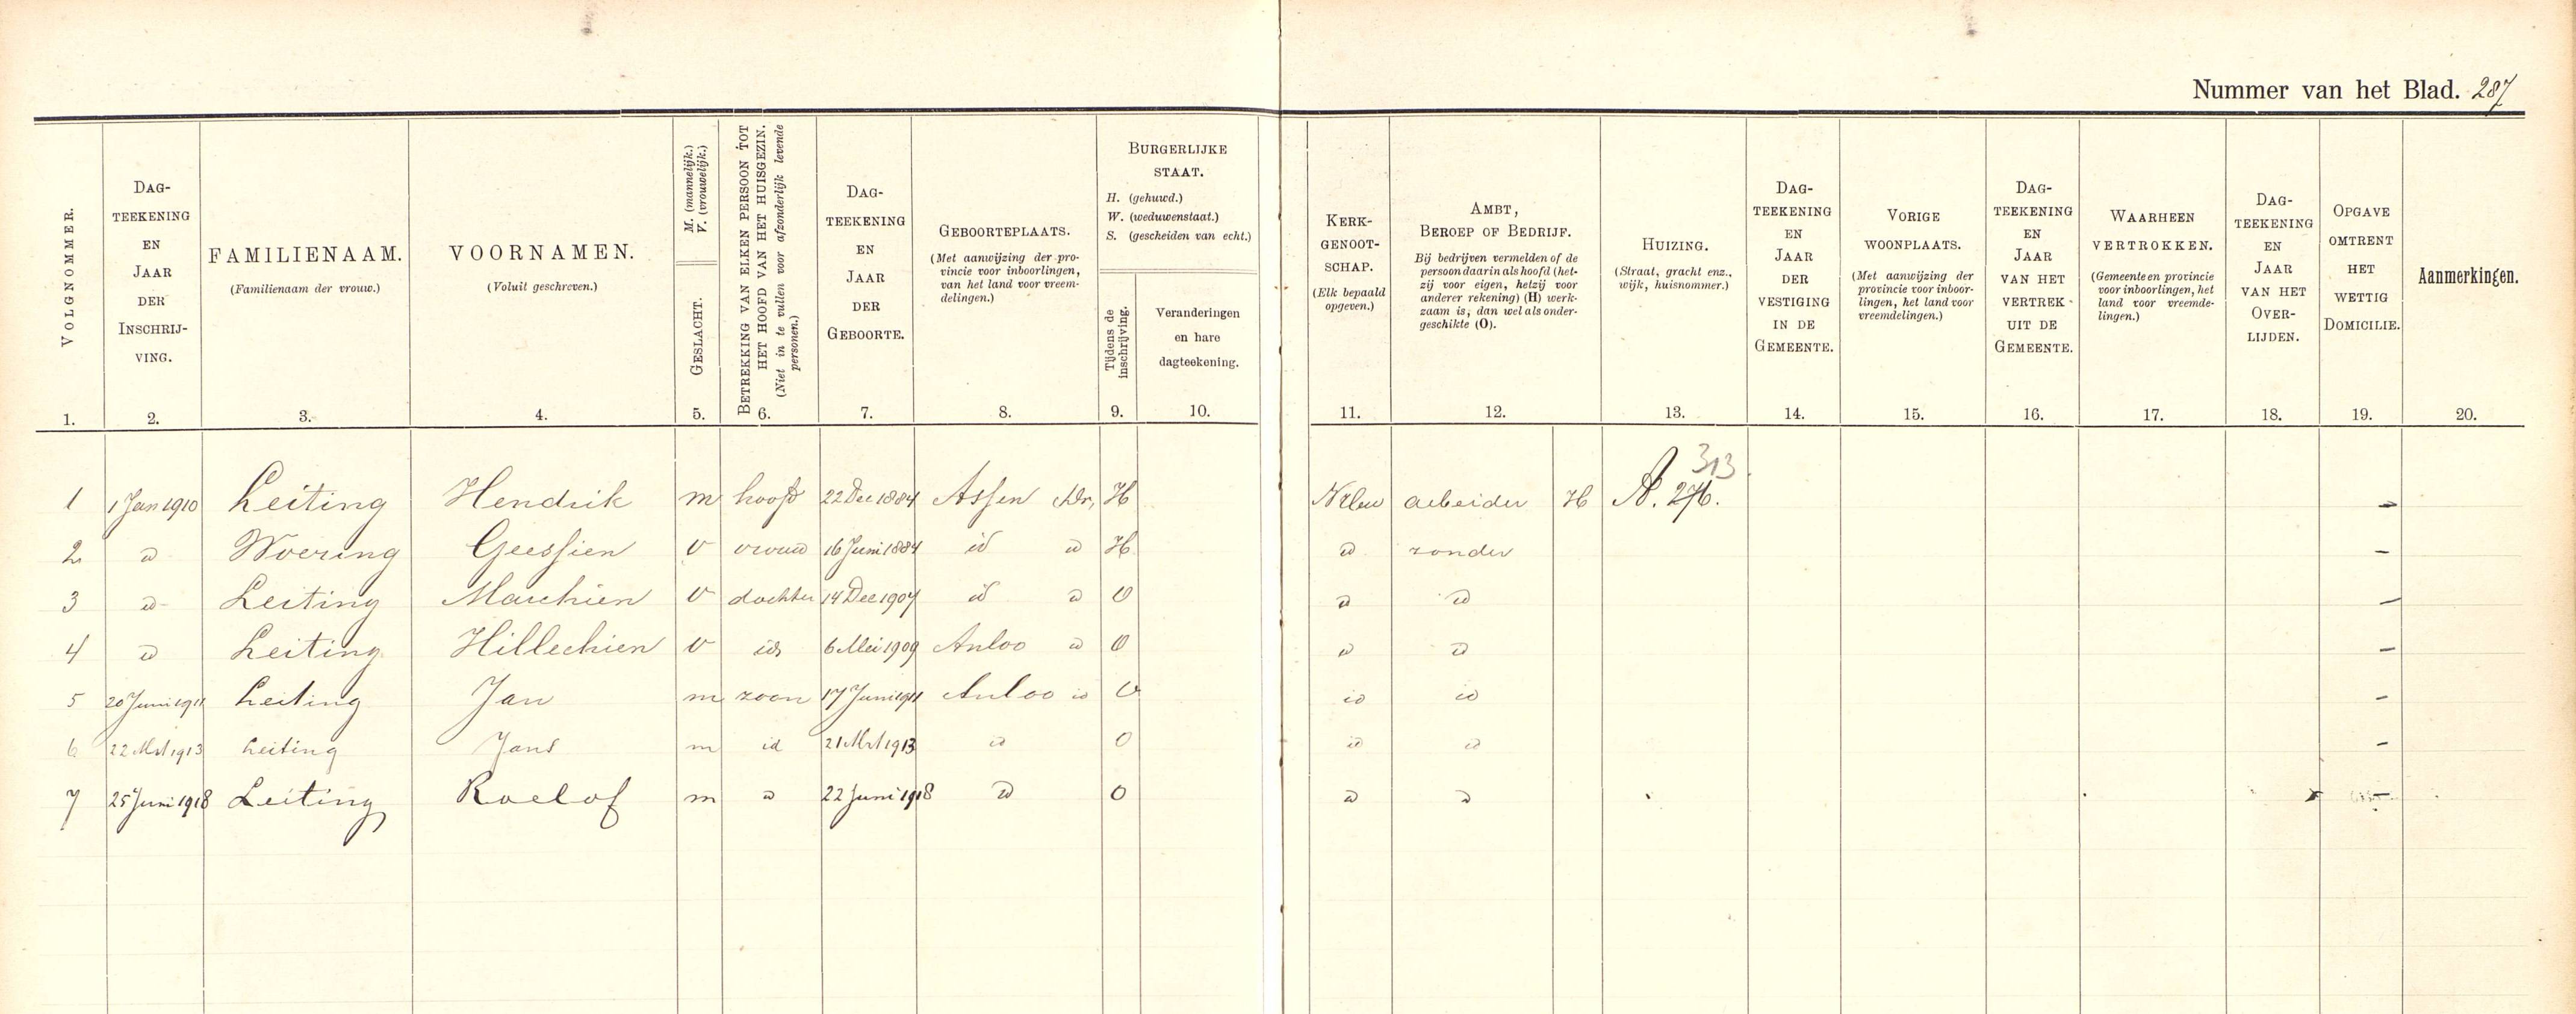 Nummer van het Blad. 287
VOLGNOMMER.
1.
DAG-
TEEKENING
EN
JAAR
DER
INSCHRIJ-
VING.
2.
FAMILIENAAM.
(Familienaam der vrouw.)
3.
VOORNAMEN.
(Voluit geschreven.)
4.
M. (mannelijk.)
V. (vrouwelijk.)
GESLACHT.
5.
BETREKKING VAN ELKEN PERSOON TOT
HET HOOFD VAN HET HUISGEZIN.
(Niet in te vullen voor afzonderlijk levende
personen.)
6.
DAG-
TEEKENING
EN
JAAR
DER
GEBOORTE.
7.
GEBOORTEPLAATS.
(Met aanwijzing der pro-
vincie voor inboorlingen,
van het land voor vreem-
delingen.)
8.
BURGERLIJKE
STAAT.
H. (gehuwd.)
W. (weduwenstaat.)
S. (gescheiden van echt.)
Tijdens de
inschrijving.
9.
Veranderingen
en hare
dagteekening.
10.
KERK-
GENOOT-
SCHAP.
(Elk bepaald
opgeven.)
11.
AMBT,
BEROEP OF BEDRIJF.
Bij bedrijven vermelden of de
persoon daarin als hoofd (het-
zij voor eigen, hetzij voor
anderer rekening) (H) werk-
zaam is, dan wel als onder-
geschikte (O).
12.
HUIZING.
(Straat, gracht enz.,
wijk, huisnommer.)
13.
DAG-
TEEKENING
EN
JAAR
DER
VESTIGING
IN DE
GEMEENTE.
14.
VORIGE
WOONPLAATS.
(Met aanwijzing der
provincie voor inboor-
lingen, het land voor
vreemdelingen.)
15.
DAG-
TEEKENING
EN
JAAR
VAN HET
VERTREK
UIT DE
GEMEENTE.
16.
WAARHEEN
VERTROKKEN.
(Gemeente en provincie
voor inboorlingen, het
land voor vreemde-
lingen.)
17.
DAG-
TEEKENING
EN
JAAR
VAN HET
OVER-
LIJDEN.
18.
OPGAVE
OMTRENT
HET
WETTIG
DOMICILIE.
19.
Aanmerkingen.
20.
313
1 1 Jan 1910 Leiting Hendrik m hoofd 22 Dec 1884 Assen Dr. H arbeider H A. 276. –
2 id Woering Geessien v vrouw 16 Juni 1884 id id H id zonder –
3 id Leiting Marchien v dochter 14 Dec 1907 id id O id id –
4 id Leiting Hillechien v id 6 Mei 1909 Anloo id O id id –
5 20 Juni 1911 Leiting Jan m zoon 17 Juni 1911 Anloo id O id id –
6 22 Mrt 1913 Leiting Jans m id 21 Mrt 1913 id O id id –
7 25 Juni 1918 Leiting Roelof m id 22 Juni 1918 id O id id –